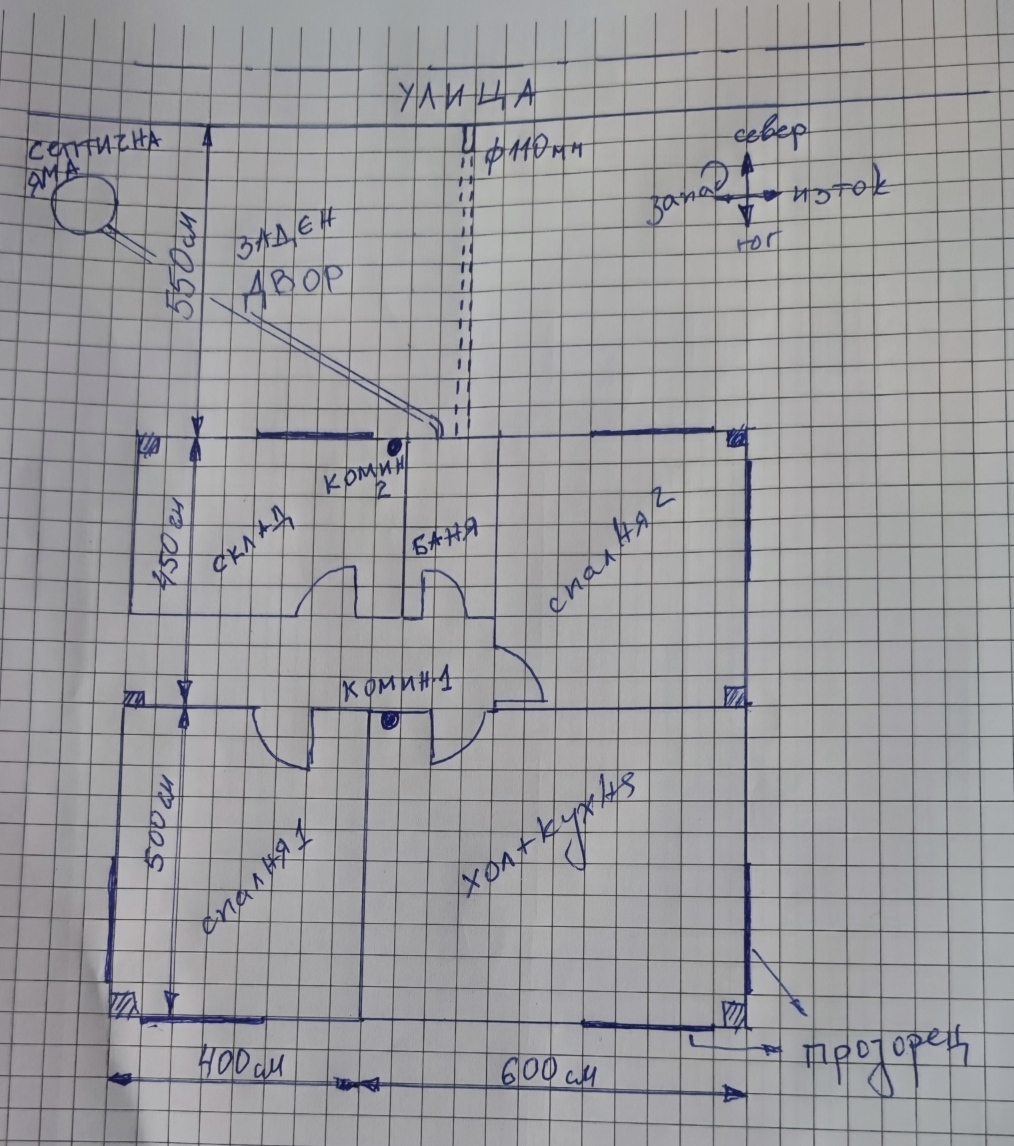 УЛИЦА
СЕПТИЧНА
ЯМА
ф110мм
север
запад
изток
юг
550см
ЗАДЕН
ДВОР
КОМИН
2
450см
склад
БАНЯ
спалня 2
КОМИН 1
500см
спалня 1
хол+кухня
прозорец
400см
600см